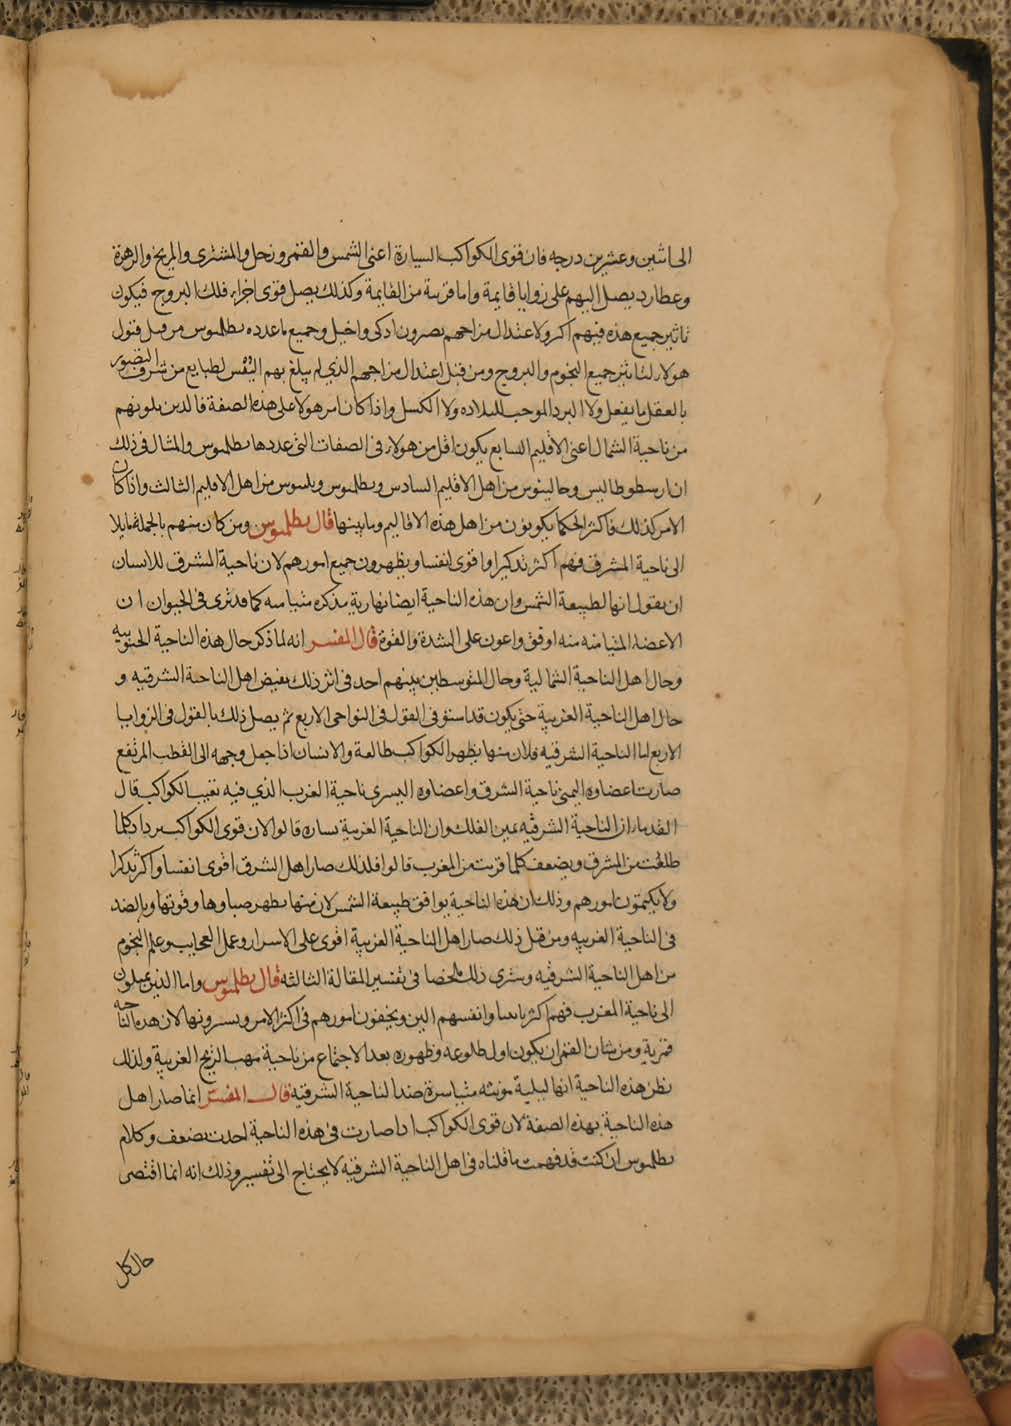 الى اثنين وعشرين درجه فان قوى الكواكب السيارة اعنى الشمس والقمر وزحل والمشترى والمريخ والزهرة
وعطارد يصل اليهم على زوايا قايمة واما قريبة من القايمة وكذلك يصل قوى اجزاء فلك البروج فيكون
تاثير جميع هذه فيهم اكثر ولاعتدال مزاجهم يصيرون اذكى واخيل وجميع ما عدده بطلميوس من قبل قبول
هولاء لتاثير جميع النجوم والبروج ومن قبل اعتدال مزاجهم الذي لم يبلغ بهم اليبس لطبايع من شرف التصور
بالعقل ما يفعل ولا البرد الموجب للبلاده ولا الكسل واذا كان امر هولا على هذه الصفة فالذين يلونهم
من ناحية الشمال اعنى الاقليم السابع يكون اقل من هولاء فى الصفات التى عددها بطلميوس والمثال فى ذلك
ان ارسطوطاليس وجالينوس من اهل الاقليم السادس وبطلميوس من اهل الاقليم الثالث واذا كان
الامر كذلك فاكثر الحكما يكونون من اهل هذه الاقاليم وما بينها قال بطلميوس ومن كان منهم بالجملة مايلا
الى ناحية المشرق فهم اكثر تذكيرا واقوى انفسا ويظهرون جميع امورهم لان ناحية الشرق للانسان
ان يقول انها لطبيعة الشمس وان هذه الناحية ايضا نهارية مذكره متيامنه كما قد نرى فى الحيوان ان
الاعضاء المتيامنه منه اوفق واعون على الشدة والقوة قال المفسر انه لما ذكر حال هذه الناحية الجنوبيه
وحال اهل الناحية الشمالية وحال المتوسطين بينهم اخذ فى اثر ذلك بعض اهل الناحية الشرقيه و
حال اهل الناحية الغربية حتى يكون قد استوفى القول فى النواحى الاربع ثم يصل ذلك بالقول فى الزوايا
الاربع اما الناحية الشرقيه فلان منها يظهر الكواكب طالعة والانسان اذا جعل وجهه الى القطب المرتفع
صارت اعضاوه اليمنى ناحية الشرق واعضاوه اليسرى ناحية الغرب الذي فيه تغيب الكواكب قال
القدما ان الناحية الشرقيه يمين الفلك وان الناحية الغربية يساره قالوا لان قوى الكواكب يزداد كلما
طلعت من المشرق ويضعف كلما قربت من المغرب قالوا فلذلك صار اهل الشرق اقوى انفسا واكثر تذكرا
ولا يكتمون امورهم وذلك ان هذه الناحية يوافق طبيعة الشمس لان منها يظهر ضياوها وقوتها وبالضد
فى الناحية الغربيه ومن قبل ذلك صار اهل الناحية الغربية اقوى على الاسرار وعمل العجايب وعلم النجوم
من اهل الناحية الشرقيه وسترى ذلك ملخصا فى تفسير المقالة الثالثه قال بطلميوس واما الذين يميلون
الى ناحية المغرب فهم اكثر تانيثا وانفسهم الين ويخفون امورهم فى اكثر الامر ويسترونها لان هذه الناحيه
قمرية ومن شان القمر ان يكون اول طلوعه وظهوره بعد الاجتماع من ناحية مهب الريح الغربية ولذلك
يظن هذه الناحية انها ليلية مونثه متياسرة ضد الناحية الشرقيه قال المفسر انما صار اهل
هذه الناحية بهذه الصفة لان قوى الكواكب اذا صارت فى هذه الناحية اخذت يضعف وكلام
بطلميوس ان كنت قد فهمت ما قلناه فى اهل الناحية الشرقيه لا يحتاج الى تفسير وذلك انه انما اقتضى
حال كل